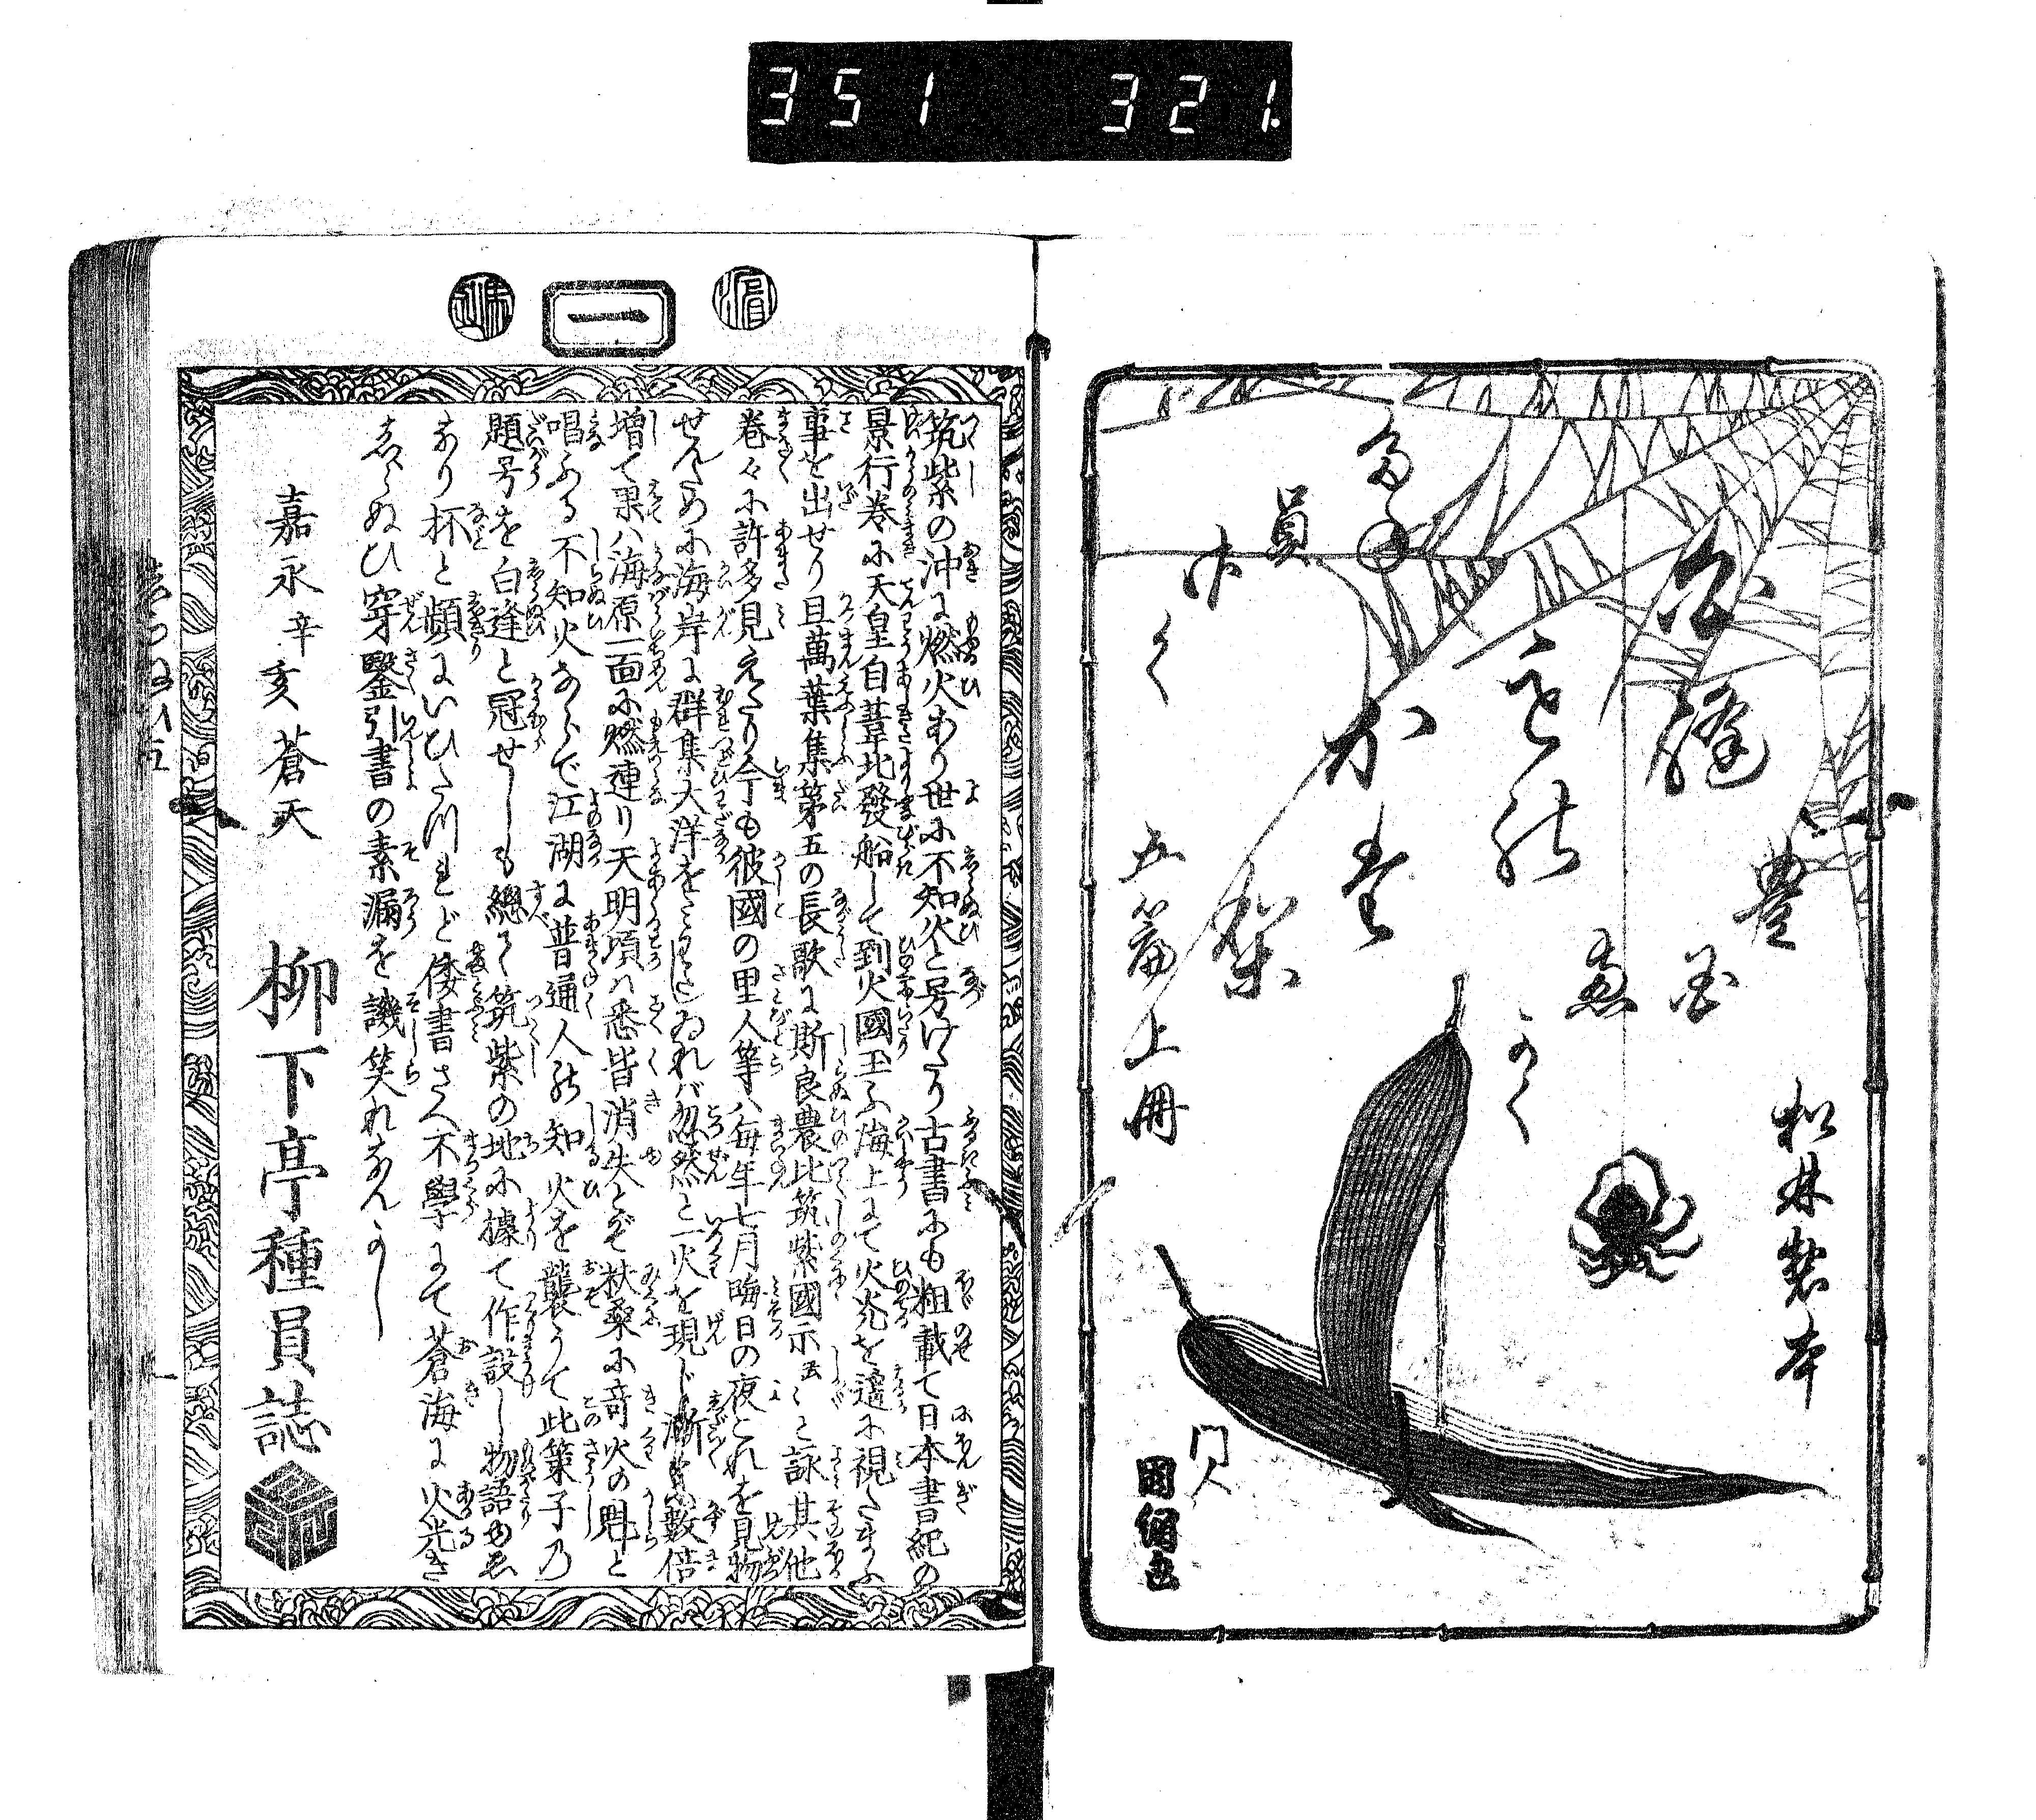 351 321
白縫
豊国画
かく
たね員
作
五篇上冊
松林製本
門人
国綱画
一
筑紫の沖に燃火あり世に不知火と号けたり古書にも粗載て日本書紀の
景行巻に天皇自葦北發船して到火國玉ふ海上にて火光を遥に視たまふ
事を出せり且萬葉集第五の長歌に斯良農比筑紫國示云々と詠其他
巻々に許多見えたり今も彼國の里人等ハ毎年七月晦日の夜これを見物
せんために海岸に群集大洋をみわたしゐれバ忽然と一火を現じ漸々数倍
増て果ハ海原一面に燃連り天明頃ハ悉皆消失とぞ扶桑に奇火の魁と
唱ふる不知火ならで江湖に普通人の知火を襲うて此策子乃
題号を白縫と冠せしも總て筑紫の地に據て作設し物語ゆゑ
なり杯と頻にいひたつれど倭書さへ不學にて蒼海に火光き
しらぬひ穿鑿引書の素漏を譏笑れなんかし
嘉永辛亥蒼天
柳下亭種員誌